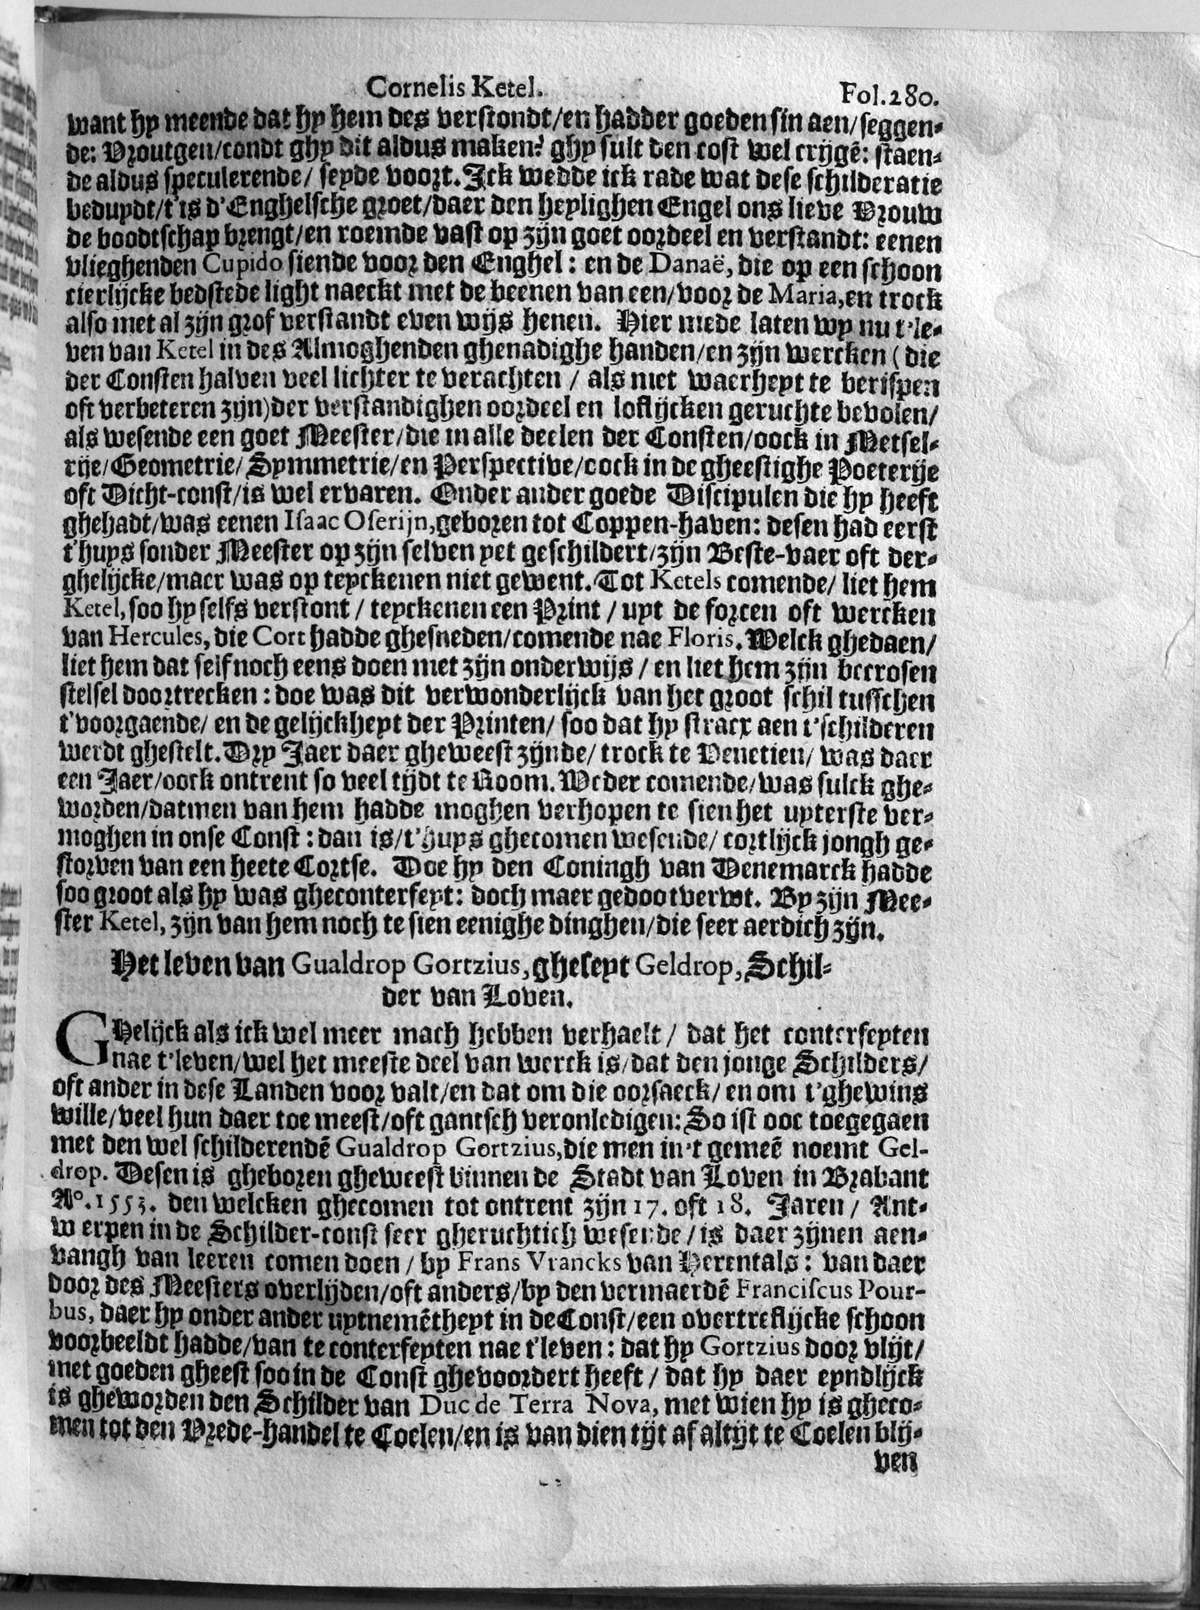 Cornelis Ketel. Fol.280.
want hy meende dat hy hem des verstondt/en hadder goeden sin aen/seggen-
de: Vroutgen/condt ghy dit aldus maken? ghy sult den cost wel crijgē: staen-
de aldus speculerende/ seyde voort. Ick wedde ick rade wat dese schilderatie
beduydt/t'is d'Enghelsche groet/daer den heylighen Engel ons lieve Vrouw
de boodtschap brengt/en roemde vast op zijn goet oordeel en verstandt: eenen
vlieghenden Cupido siende voor den Enghel: en de Danaë, die op een schoon
cierlijcke bedstede light naeckt met de beenen van een/voor de Maria,en trock
also met al zijn grof verstandt even wijs henen. Hier mede laten wy nu t'le-
ven van Ketel in des Almoghenden ghenadighe handen/en zijn wercken (die
der Consten halven veel lichter te verachten / als met waerheyt te berispen
oft verbeteren zijn)der verstandighen oordeel en loflijcken geruchte bevolen/
als wesende een goet Meester/die in alle deelen der Consten/oock in Metsel-
rije/Geometrie/Symmetrie/en Perspective/oock in de gheestighe Poeterije
oft Dicht-const/is wel ervaren. Onder ander goede Discipulen die hy heeft
ghehadt/was eenen Isaac Oserijn,geboren tot Coppen-haven: desen had eerst
t'huys sonder Meester op zijn selven yet geschildert/zijn Beste-vaer oft der-
ghelijcke/maer was op teyckenen niet gewent. Tot Ketels comende/ liet hem
Ketel,soo hy selfs verstont / teyckenen een Print / uyt de forcen oft wercken
van Hercules, die Cort hadde ghesneden/comende nae Floris. Welck ghedaen/
liet hem dat self noch eens doen met zijn onderwijs / en liet hem zijn becrosen
stelsel doortrecken: doe was dit verwonderlijck van het groot schil tusschen
t'voorgaende/ en de gelijckheyt der Printen/ soo dat hy stracx aen t'schilderen
werdt ghestelt. Dry Jaer daer gheweest zijnde/ trock te Venetien/ was daer
een Jaer/oock ontrent so veel tijdt te Room. Weder comende/was sulck ghe-
worden/datmen van hem hadde moghen verhopen te sien het uyterste ver-
moghen in onse Const: dan is/t'huys ghecomen wesende/ cortlijck jongh ge-
storven van een heete Cortse. Doe hy den Coningh van Denemarck hadde
soo groot als hy was gheconterfeyt: doch maer gedootverwt. By zijn Mee-
ster Ketel, zijn van hem noch te sien eenighe dinghen/die seer aerdich zijn.
Het leven van Gualdrop Gortzius, gheseyt Geldrop, Schil-
der van Loven.
GHelijck als ick wel meer mach hebben verhaelt / dat het conterfeyten
nae t'leven/wel het meeste deel van werck is/dat den jonge Schilders/
oft ander in dese Landen voor valt/en dat om die oorsaeck/ en om t'ghewins
wille/veel hun daer toe meest/oft gantsch veronledigen: So ist ooc toegegaen
met den wel schilderendē Gualdrop Gortzius,die men in't gemeē noemt Gel-
drop. Desen is gheboren gheweest binnen de Stadt van Loven in Brabant
A°. 1553. den welcken ghecomen tot ontrent zijn 17. oft 18. Jaren/ Ant-
werpen in de Schilder-const seer gheruchtich wesende/is daer zijnen aen-
vangh van leeren comen doen/ by Frans Vrancks van Herentals: van daer
door des Meesters overlijden/oft anders/by den vermaerdē Franciscus Pour-
bus, daer hy onder ander uytnemētheyt in de Const/een overtreflijcke schoon
voorbeeldt hadde/van te conterfeyten nae t'leven: dat hy Gortzius door vlijt/
met goeden gheest soo in de Const ghevoordert heeft / dat hy daer eyndlijck
is gheworden den Schilder van Duc de Terra Nova, met wien hy is gheco-
men tot den Vrede-handel te Coelen/en is van dien tijt af altijt te Coelen blij-
ven